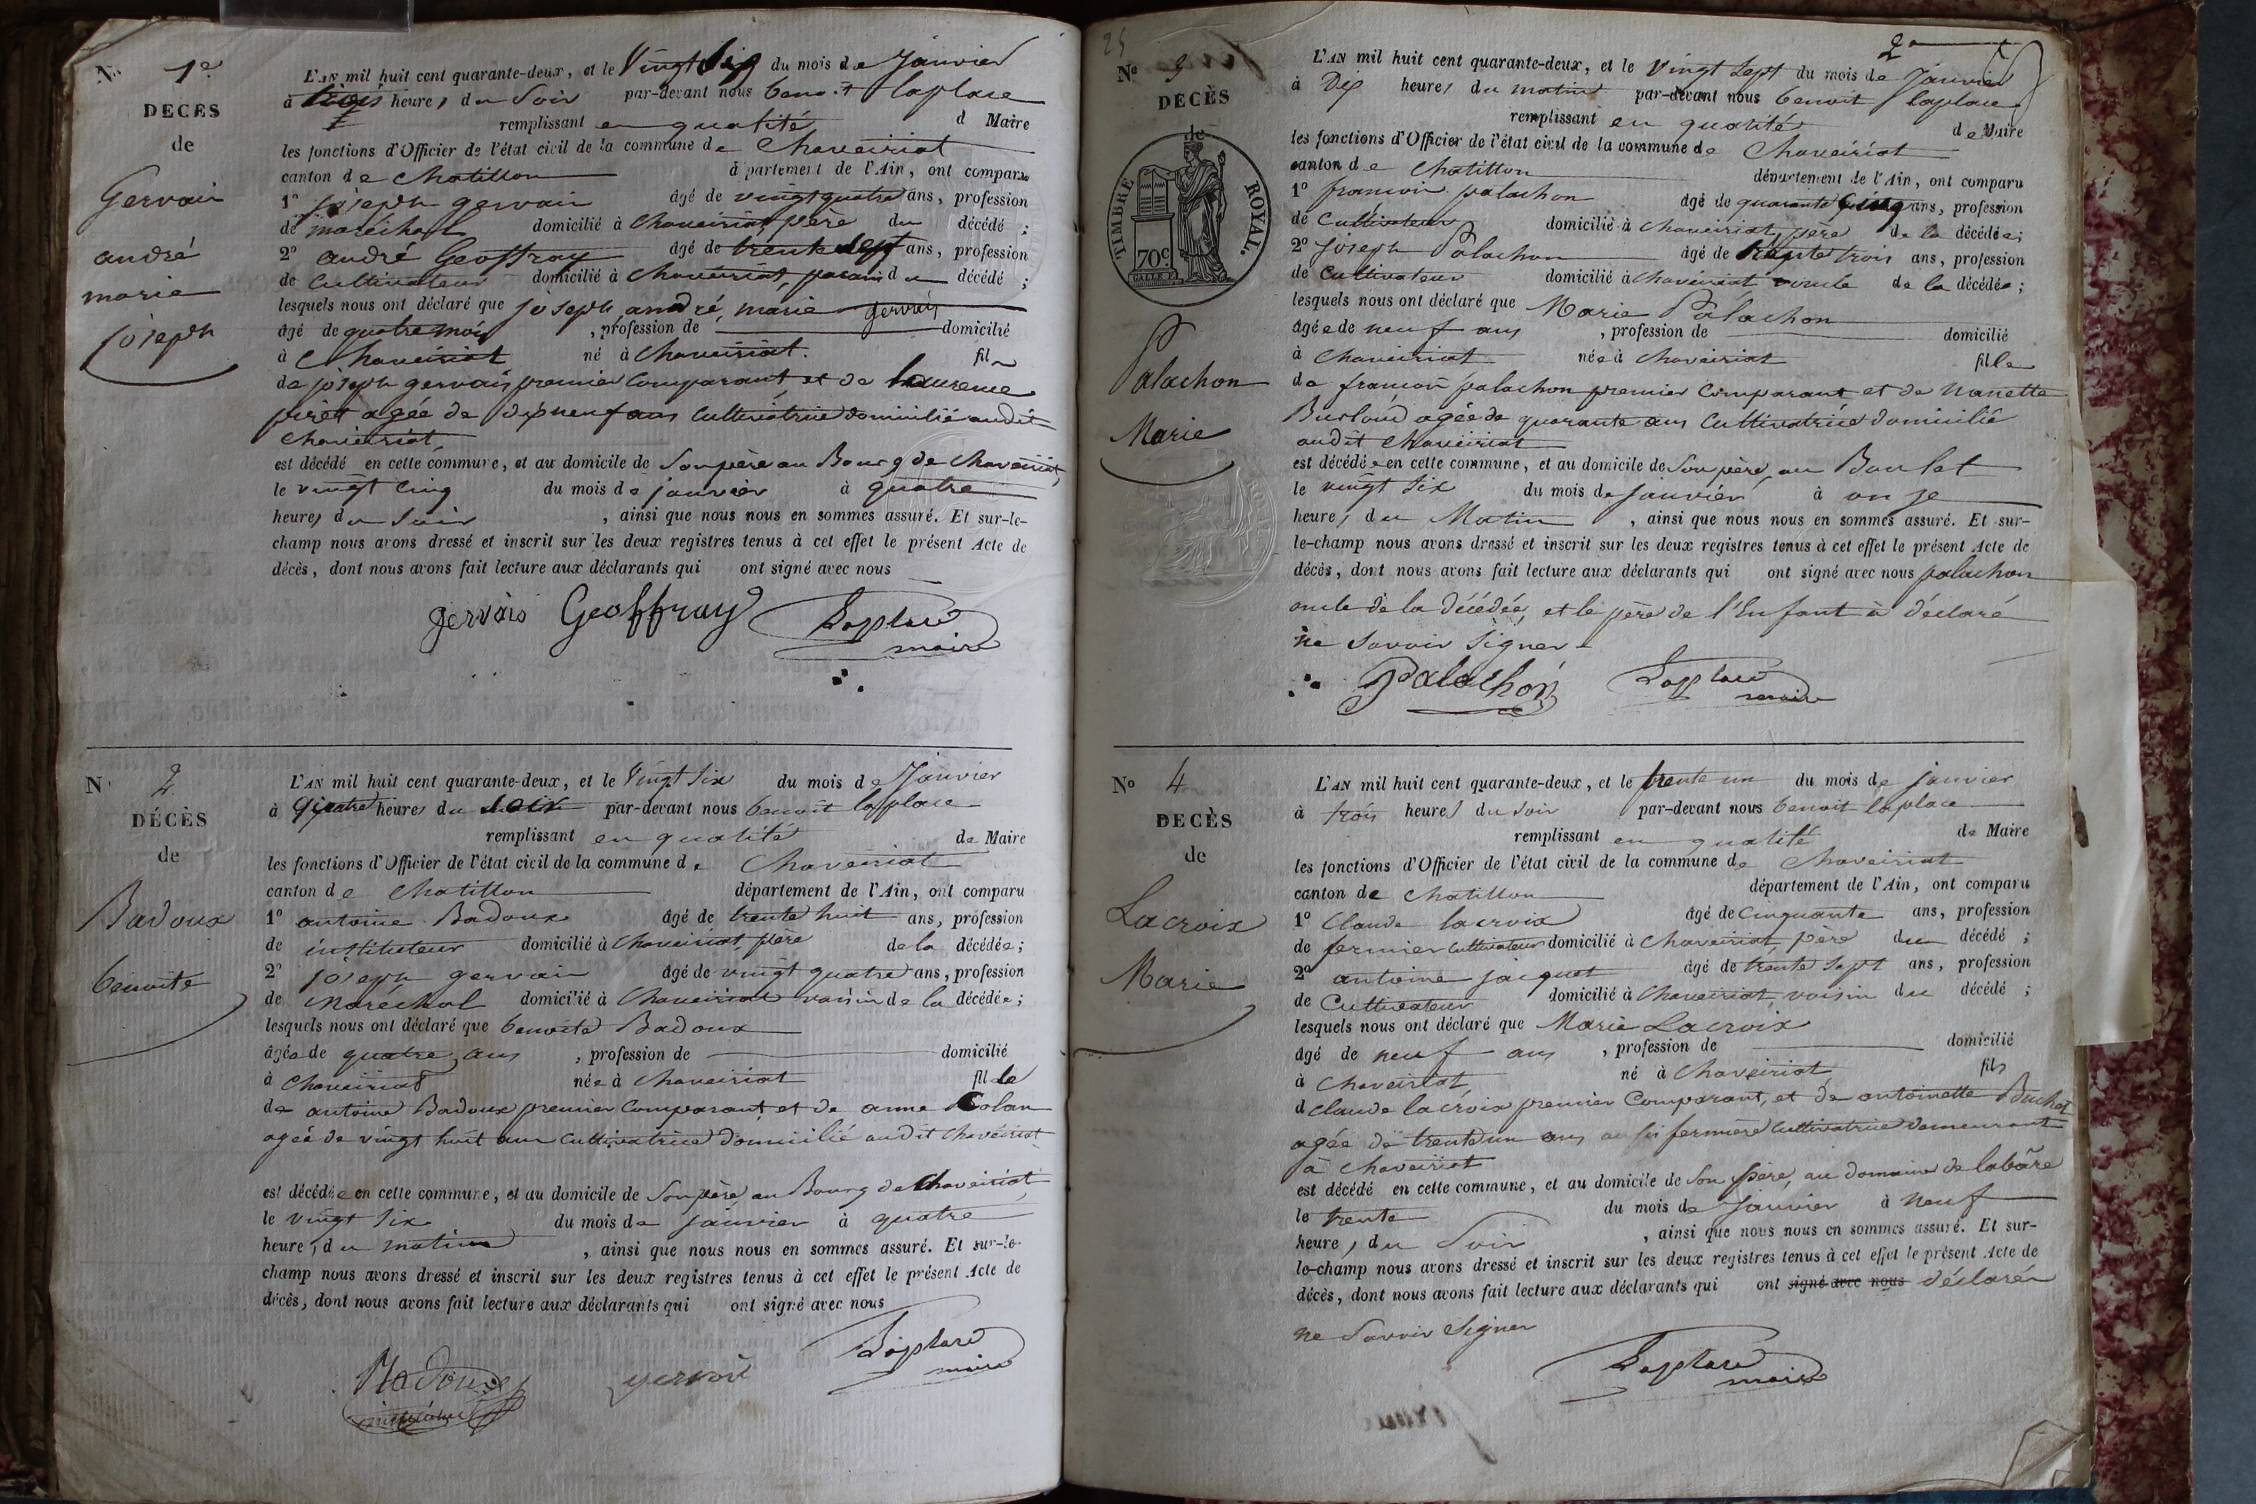 N° 1er
DÉCÈS
de
Gervais
andré
marie
joseph
L'AN mil huit cent quarante-deux, et le Vingt Six du mois de Janvier
à heures du Soir par-devant nous benoit laplace
remplissant en qualité d Maire
les fonctions d'Officier de l'état civil de la commune de Chaveiriat
canton de Chatillon département de l'Ain, ont comparu
1° joseph gervais âgé de vingt quatre ans, profession
de maréchal domicilié à Chaveiriat, père du décédé ;
2° andré Geoffray âgé de trente sept ans, profession
de Cultivateur domicilié à Chaveiriat, parain du décédé ;
lesquels nous ont déclaré que joseph andré, marie gervais
âgé de quatre mois, profession de domicilié
à Chaveiriat né à Chaveiriat. fils
de joseph gervais premier Comparant et de laurence
piret agée de dix neuf ans Cultivatrice domicilié audit
Chaveiriat
est décédé en cette commune, et au domicile de Son père au Bourg de Chaveiriat,
le vingt cinq du mois de janvier à quatre
heures du Soir, ainsi que nous nous en sommes assuré. Et sur-le-
champ nous avons dressé et inscrit sur les deux registres tenus à cet effet le présent Acte de
décès, dont nous avons fait lecture aux déclarants qui ont signé avec nous
gervais Geoffray Laplace
maire
N° 2
DÉCÈS
de
Badoux
benoite
L'AN mil huit cent quarante-deux, et le Vingt Six du mois de Janvier
à quatre heures du soir par-devant nous benoit laplace
remplissant en qualité de Maire
les fonctions d'Officier de l'état civil de la commune de Chaveiriat
canton de Chatillon département de l'Ain, ont comparu
1° antoine Badoux âgé de trente huit ans, profession
de instituteur domicilié à Chaveiriat, père de la décédée ;
2° joseph gervais âgé de vingt quatre ans, profession
de Maréchal domicilié à Chaveiriat voisin de la décédée ;
lesquels nous ont déclaré que benoite Badoux
âgée de quatre ans, profession de domicilié
à Chaveiriat née à Chaveiriat fille
de antoine Badoux premier Comparant, et de anne Colan
agée de vingt huit ans Cultivatrice domicilié audit Chaveiriat
est décédée en cette commune, et au domicile de Son père, au Bourg de Chaveiriat
le vingt Six du mois de janvier à quatre
heures du matin, ainsi que nous nous en sommes assuré. Et sur-le-
champ nous avons dressé et inscrit sur les deux registres tenus à cet effet le présent Acte de
décès, dont nous avons fait lecture aux déclarants qui ont signé avec nous
Badoux gervais Laplace
maire
25
2e
N° 3
DÉCÈS
de
TIMBRE ROYAL.
70c.
Palachon
Marie
L'AN mil huit cent quarante-deux, et le Vingt Sept du mois de Janvier
à Dix heures du matin par-devant nous benoit laplace
remplissant en qualité de Maire
les fonctions d'Officier de l'état civil de la commune de Chaveiriat
canton de Chatillon département de l'Ain, ont comparu
1° francois palachon âgé de quarante Cinq ans, profession
de Cultivateur domicilié à Chaveiriat, père de la décédée ;
2° joseph Palachon âgé de trente trois ans, profession
de Cultivateur domicilié à Chaveiriat oncle de la décédée ;
lesquels nous ont déclaré que Marie Palachon
âgée de neuf ans, profession de domicilié
à Chaveiriat née à Chaveiriat fille
de francois palachon premier Comparant et de Nanette
agée de quarante ans Cultivatrice domicilié
audit Chaveiriat
est décédée en cette commune, et au domicile de Son père, au Boulet
le vingt Six du mois de Janvier à onze
heures du Matin, ainsi que nous nous en sommes assuré. Et sur-
le-champ nous avons dressé et inscrit sur les deux registres tenus à cet effet le présent Acte de
décès, dont nous avons fait lecture aux déclarants qui ont signé avec nous palachon
oncle de la décédée, et le père de l'Enfant à déclaré
ne Savoir Signer
Palachon Laplace
maire
N° 4
DÉCÈS
de
Lacroix
Marie
L'AN mil huit cent quarante-deux, et le trente un du mois de janvier
à trois heures du Soir par-devant nous benoit laplace
remplissant en qualité de Maire
les fonctions d'Officier de l'état civil de la commune de Chaveiriat
canton de Chatillon département de l'Ain, ont comparu
1° Claude lacroix âgé de Cinquante ans, profession
de fermier Cultivateur domicilié à Chaveiriat, père du décédé ;
2° antoine jacquet âgé de trente Sept ans, profession
de Cultivateur domicilié à Chaveiriat, voisin du décédé ;
lesquels nous ont déclaré que Marie Lacroix
âgé de neuf ans, profession de domicilié
à Chaveiriat, né à Chaveiriat fils
d Claude lacroix premier Comparant, et de antoinette Buchet
agée de trente un ans aussi fermiere Cultivatrice demeurant
à Chaveiriat
est décédé en cette commune, et au domicile de Son père, au domaine de labâre
le trente du mois de Janvier à neuf
heures du Soir, ainsi que nous nous en sommes assuré. Et sur-
le-champ nous avons dressé et inscrit sur les deux registres tenus à cet effet le présent Acte de
décès, dont nous avons fait lecture aux déclarants qui ont signé avec nous déclarés
ne Savoir Signer
Laplace
maire